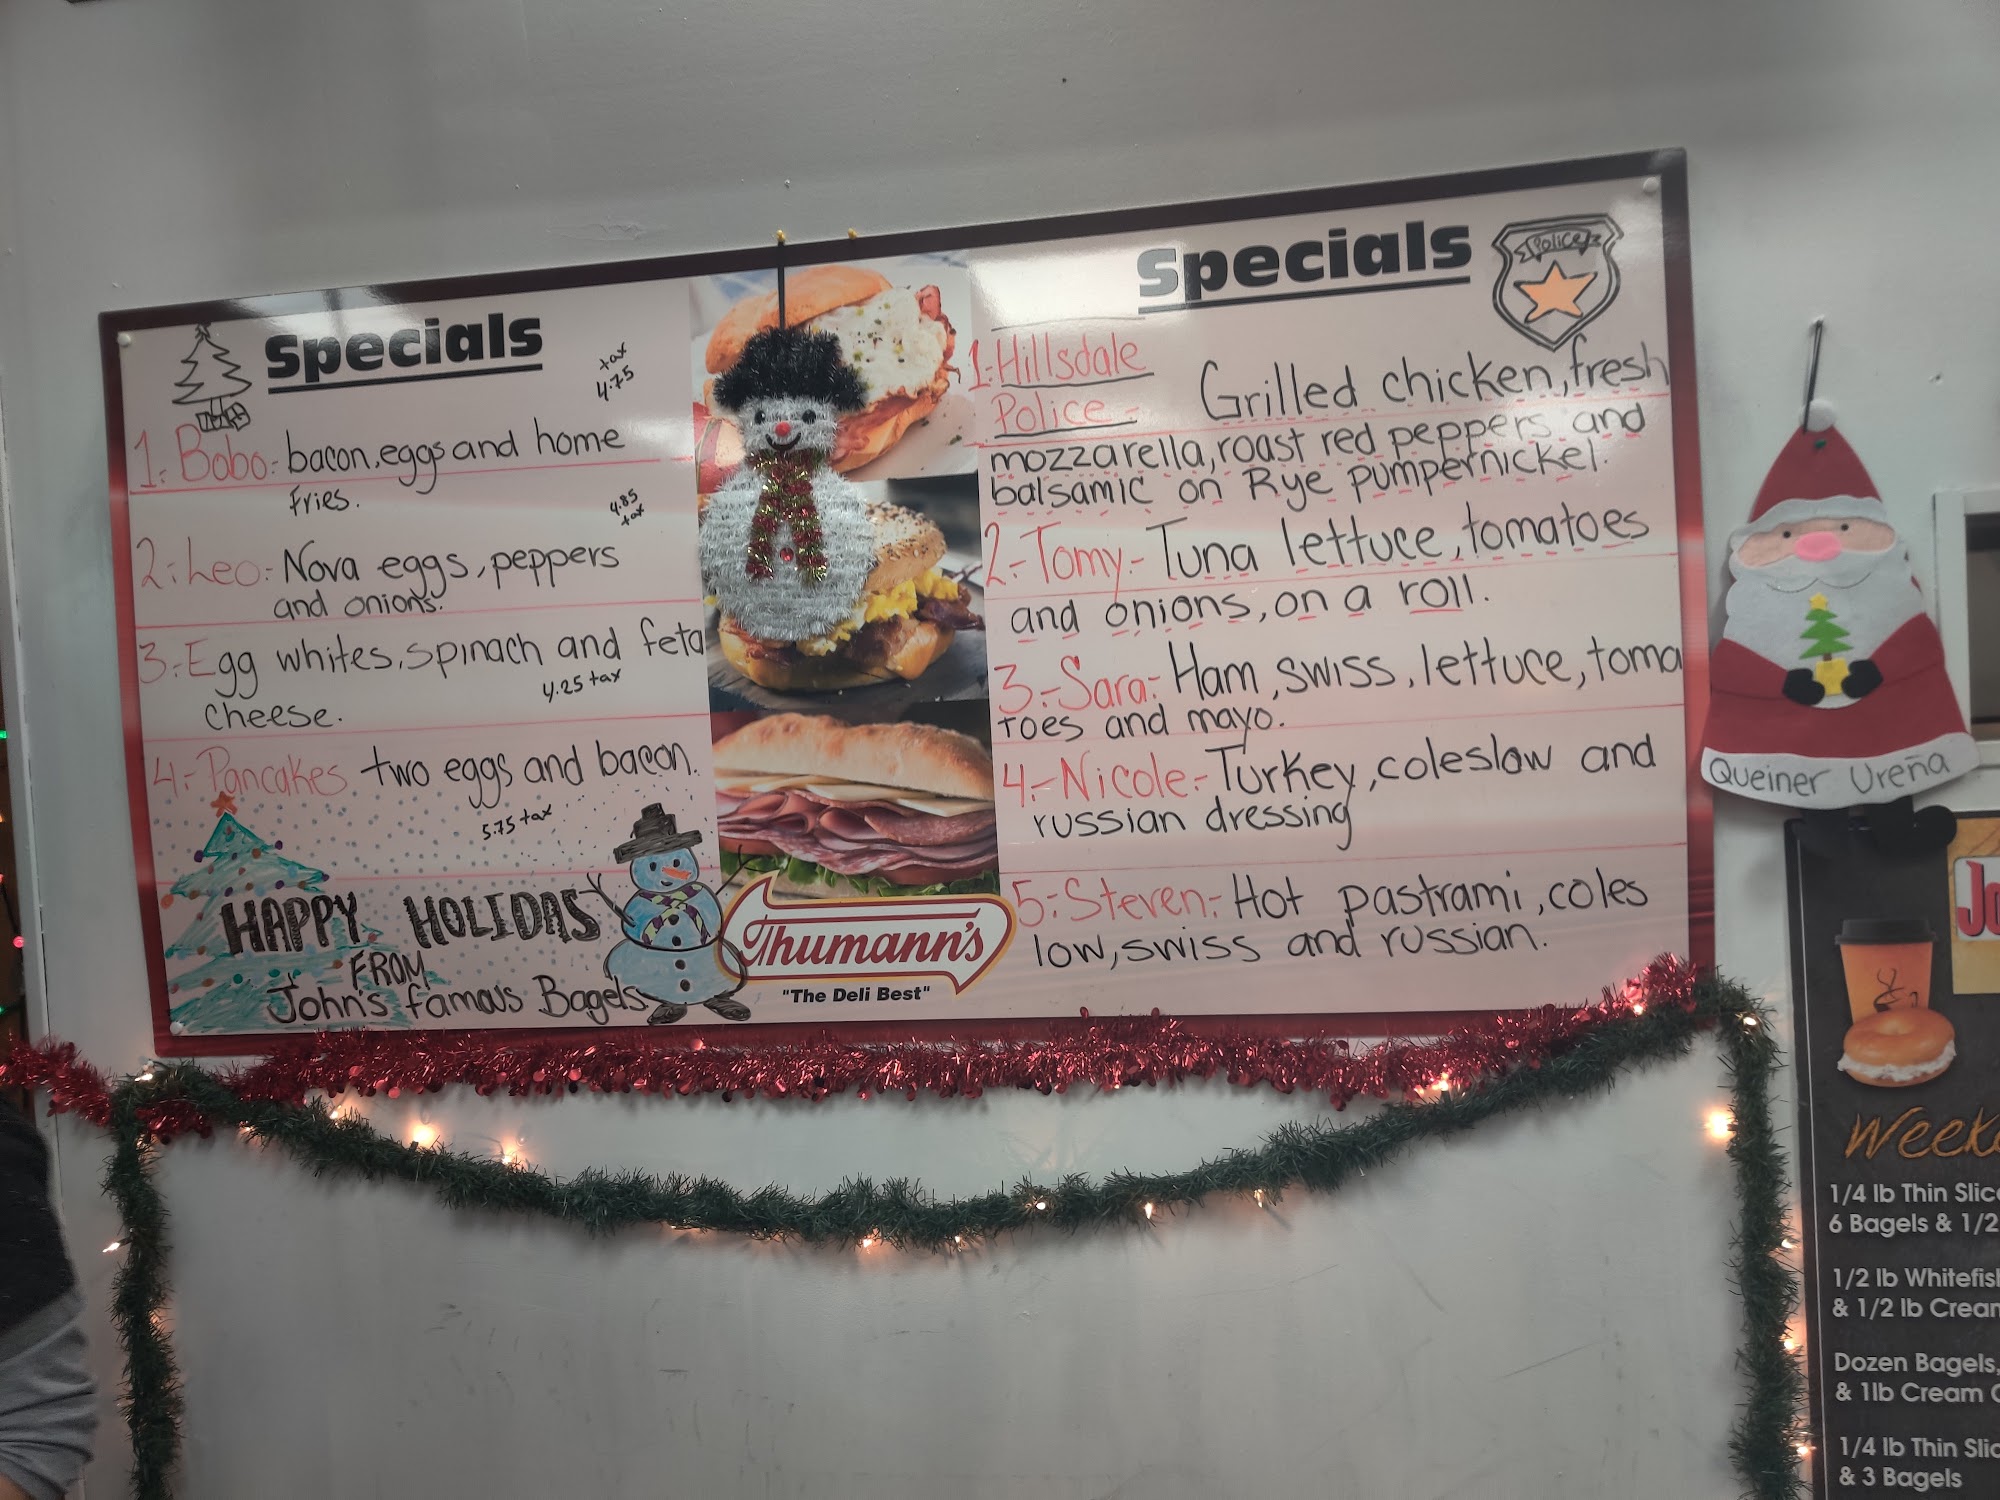 Specials
tax
4.75
1: Bobo: bacon, eggs and home
fries.
4.85
tax
2: Leo: Nova eggs, peppers
and onions.
3: Egg whites, spinach and feta
cheese.
4.25 tax
4- Pancakes two eggs and bacon.
5.75 tax
HAPPY HOLIDAS
FROM
John's famous Bagels
Thumann's
"The Deli Best"
Specials
Police
1: Hillsdale
Police - Grilled chicken, fresh
mozzarella, roast red peppers and
balsamic on Rye pumpernickel.
2- Tomy- Tuna lettuce, tomatoes
and onions, on a roll.
3- Sara: Ham, swiss, lettuce, toma
toes and mayo.
4- Nicole- Turkey, coleslaw and
russian dressing
5- Steven- Hot pastrami, coles
low, swiss and russian.
Queiner Ureña
1/4 lb Thin
6 Bagels & 1/2
1/2 lb
& 1/2 lb
Dozen Bagels,
& 1lb Cream
1/4 lb Thin
& 3 Bagels